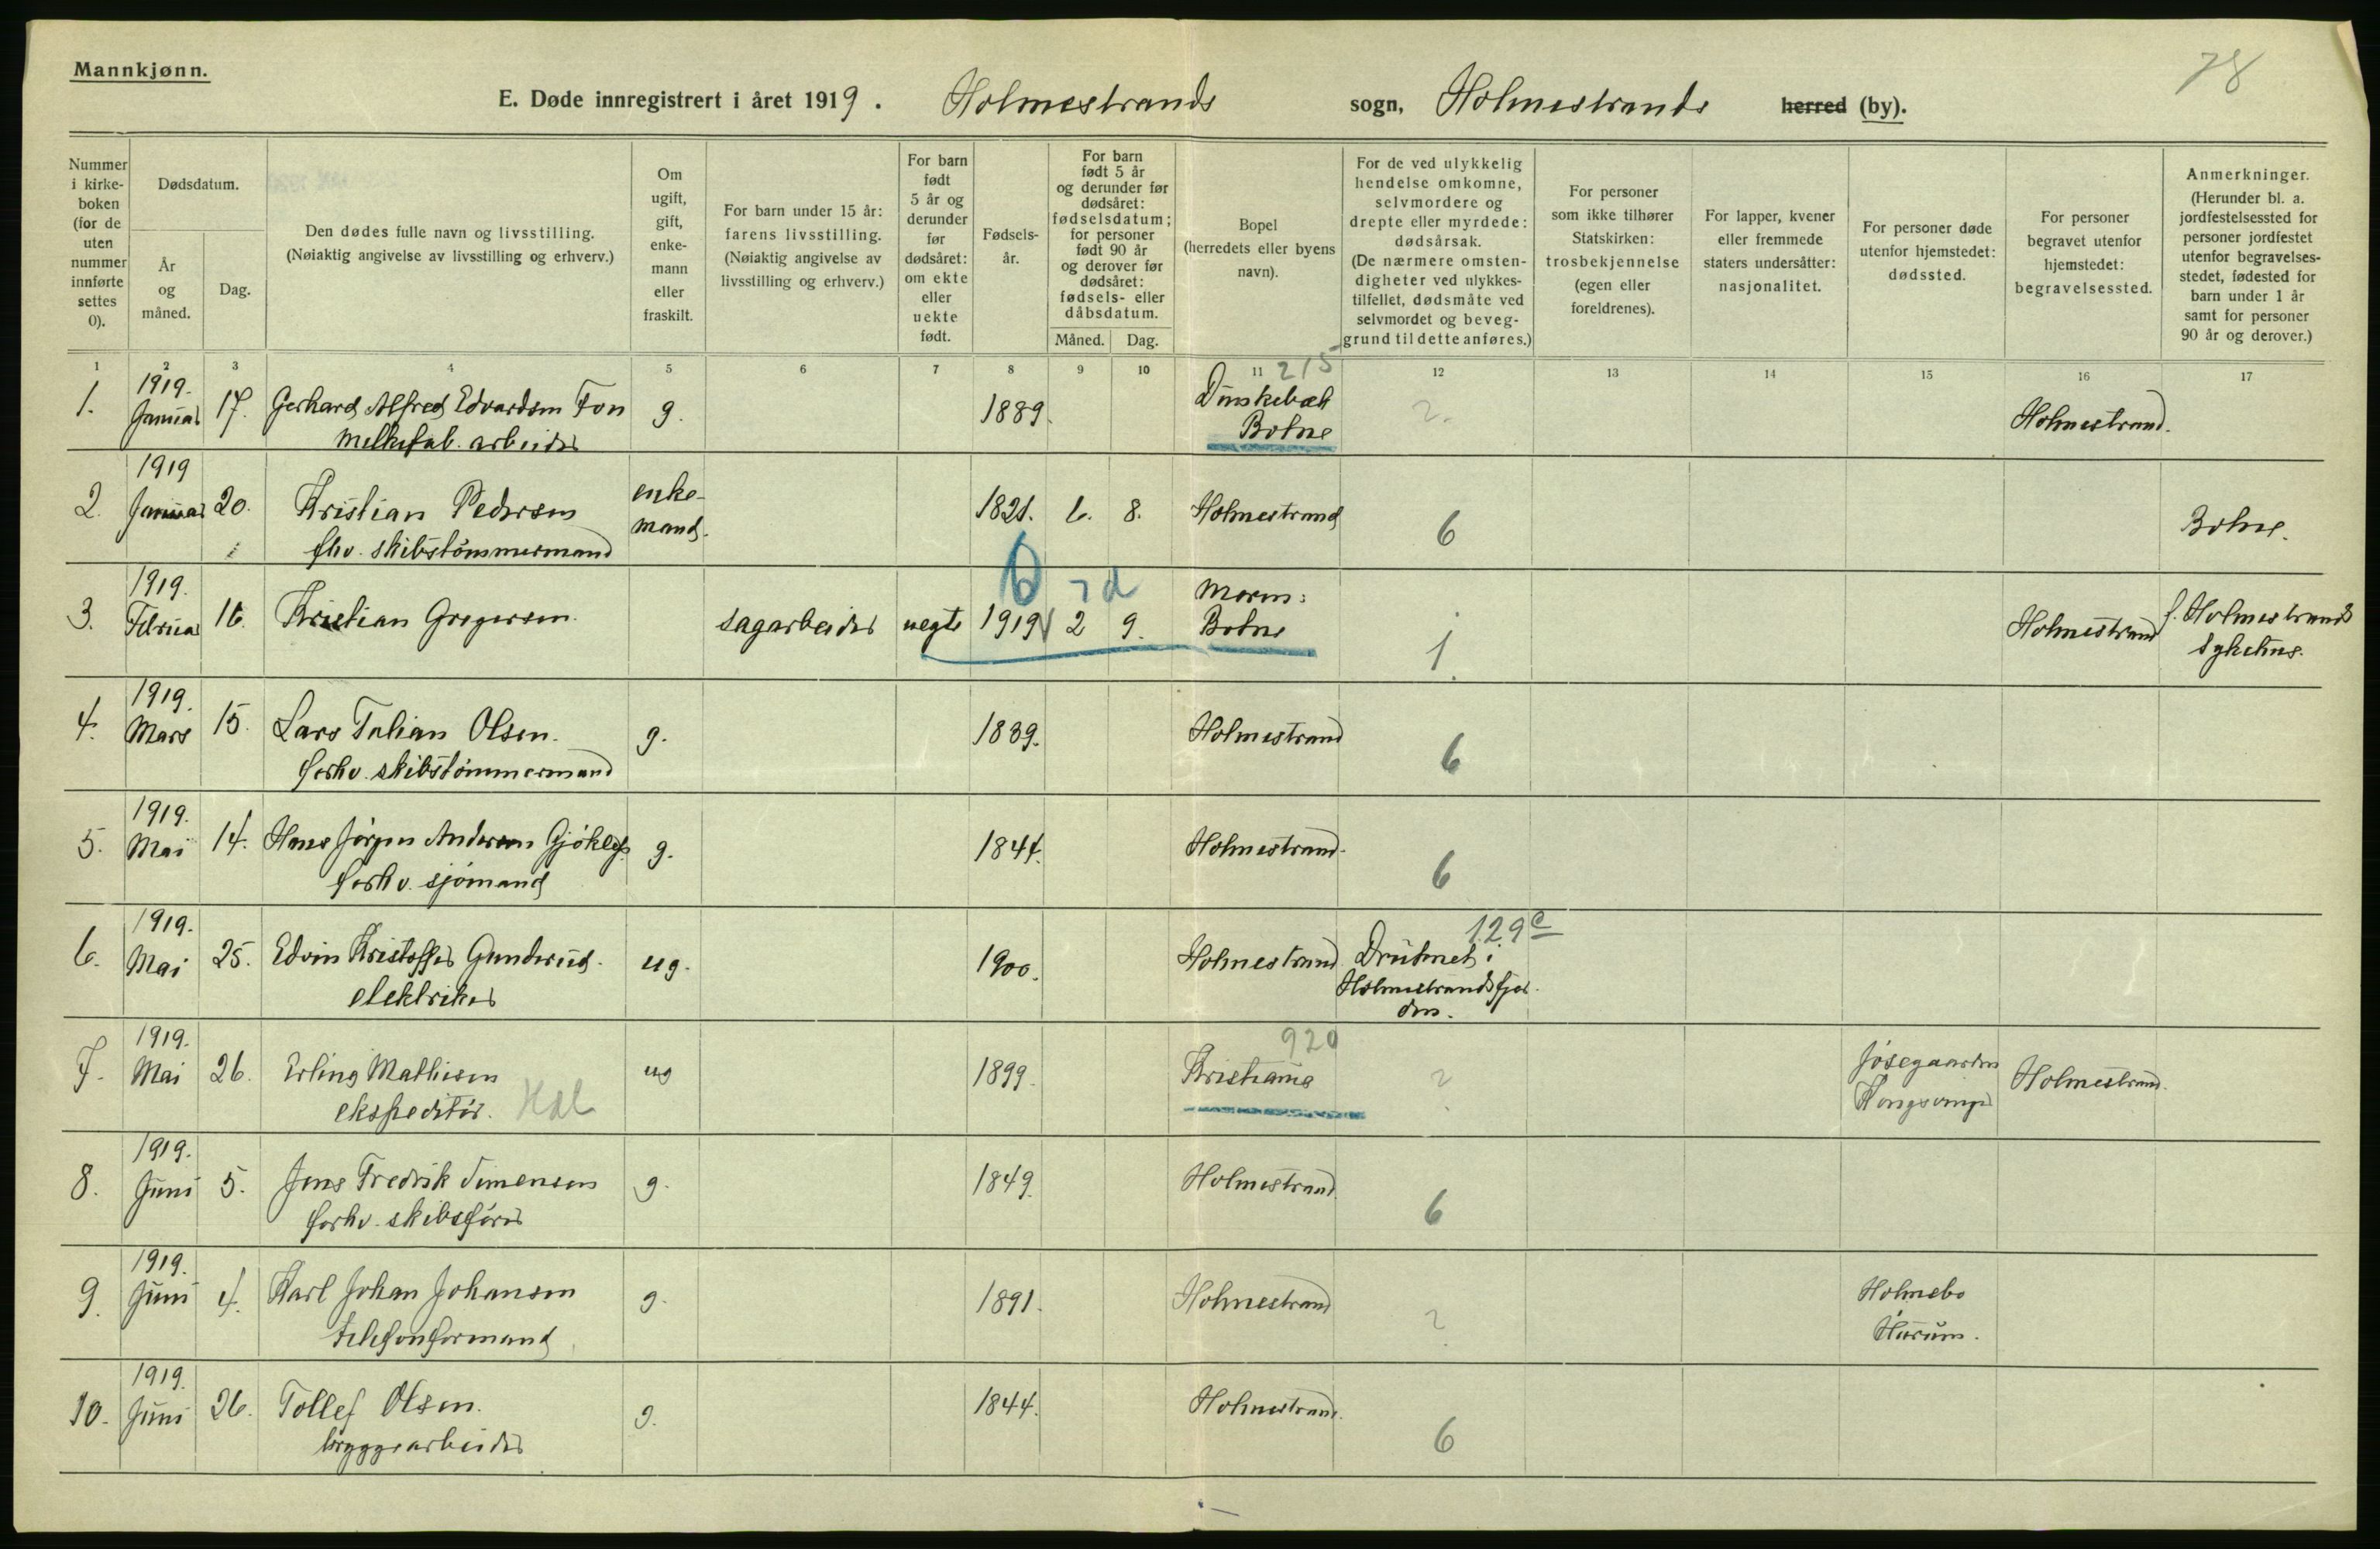 Mannkjønn.
78
E. Døde innregistrert i året 1919. Holmestrands sogn, Holmestrands herred (by).
Nummer i kirke-boken (for de uten nummer innførte settes 0).
Dødsdatum.
År og måned.
Dag.
Den dødes fulle navn og livsstilling. (Nøiaktig angivelse av livsstilling og erhverv.)
Om ugift, gift, enke-mann eller fraskilt.
For barn under 15 år: farens livsstilling. (Nøiaktig angivelse av livsstilling og erhverv.)
For barn født 5 år og derunder før dødsåret: om ekte eller uekte født.
Fødsels-år.
For barn født 5 år og derunder før dødsåret: fødselsdatum; for personer født 90 år og derover før dødsåret: fødsels- eller dåbsdatum.
Måned.
Dag.
Bopel (herredets eller byens navn).
For de ved ulykkelig hendelse omkomne, selvmordere og drepte eller myrdede: dødsårsak. (De nærmere omsten-digheter ved ulykkes-tilfellet, dødsmåte ved selvmordet og beveg-grund til dette anføres.)
For personer som ikke tilhører Statskirken: trosbekjennelse (egen eller foreldrenes).
For lapper, kvener eller fremmede staters undersåtter: nasjonalitet.
For personer døde utenfor hjemstedet: dødssted.
For personer begravet utenfor hjemstedet: begravelsessted.
Anmerkninger. (Herunder bl. a. jordfestelsessted for personer jordfestet utenfor begravelses-stedet, fødested for barn under 1 år samt for personer 90 år og derover.)
1 2 3 4 5 6 7 8 9 10 11 12 13 14 15 16 17
215
1. 1919. Januar 17. Gerhard Alfred Edvardsen Fon g. 1889. Botne 2. Holmestrand.
melkefab. arbeider
2. 1919 Januar 20. Kristian Pedersen enke-mand. 1821. 6. 8. Holmestrand 6 Botne.
fhv. skibstømmermand
3. 1919. Februar 16. Kristian Gregersen. sagarbeider uegte 1919 2 9. Moren: Botne 1. Holmestrand f. Holmestrands Sykehus.
6 7d
4. 1919. Mars 15. Lars Julian Olsen. g. 1839. Holmestrand 6
forhv. skibstømmermand
5. 1919. Mai 14. Hans Jørgen Andersen g. 1844. Holmestrand. 6
forhv. sjømand
6. 1919. Mai 25. Edvin Kristoffer Gunderud. ug. 1900. Holmestrand Druknet i Holmestrandsfjor-den. 129c
elektriker
7. 1919. Mai 26. Erling Mathisen ug 1899. 920 Kristiania 2 Kongsvinger Holmestrand.
ekspeditør. Hdl
8. 1919. Juni 5. Jens Fredrik Simensen g. 1849. Holmestrand 6
forhv. skibsfører
9. 1919. Juni 4. Karl Johan Johansen g. 1891. Holmestrand 2 Holmsbo Hurum.
telefonformand
10. 1919. Juni 26. Tollef Olsen. g. 1844. Holmestrand. 6
bryggearbeider